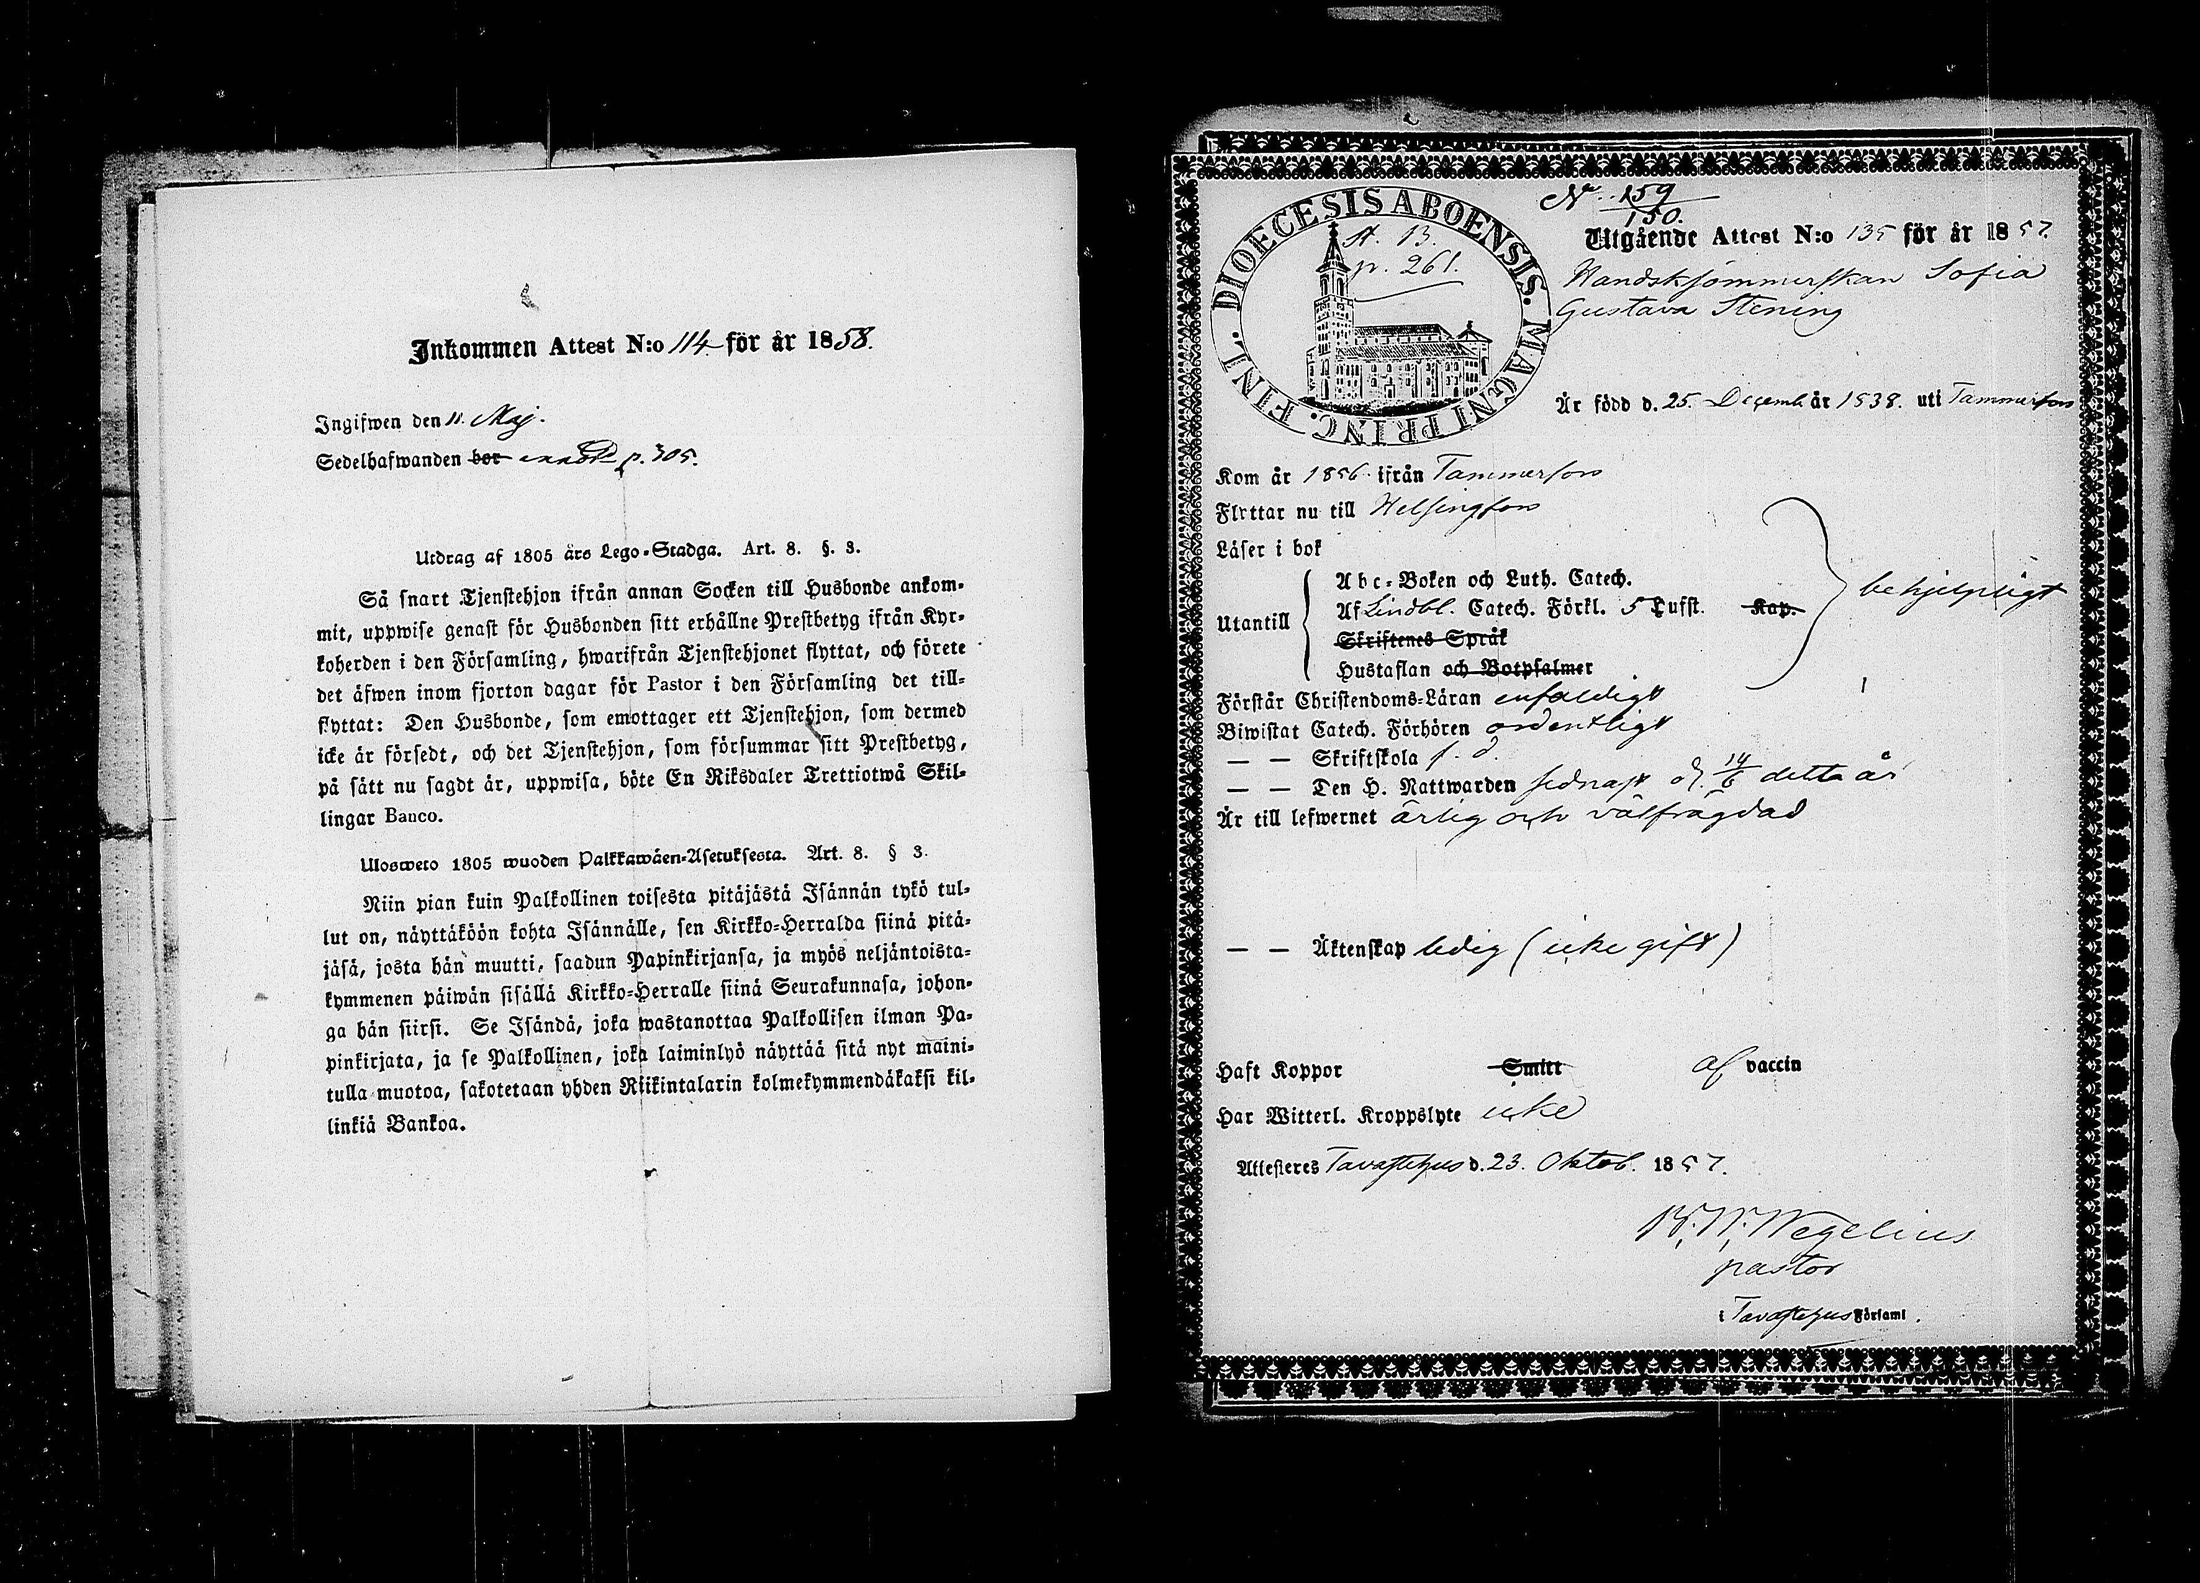 Inkommen Attest N:o 114 för år 1858.
Ingifwen den 11. Maj.
Sedelhafwanden bor p. 305.
Utdrag af 1805 års Lego-Stadga. Art. 8. §. 3.
Så snart Tjenstehjon ifrån annan Socken till Husbonde ankom-
mit, uppwise genast för Husbonden sitt erhållne Prestbetyg ifrån Kyr-
koherden i den Församling, hwarifrån Tjenstehjonet flyttat, och förete
det äfwen inom fjorton dagar för Pastor i den Församling det till-
flyttat: Den Husbonde, som emottager ett Tjenstehjon, som dermed
icke är försedt, och det Tjenstehjon, som försummar sitt Prestbetyg,
på sätt nu sagdt är, uppwisa, böte En Riksdaler Trettiotwå Skil-
lingar Banco.
Ulosweto 1805 wuoden Palkkawäen-Asetuksesta. Art. 8. § 3.
Niin pian kuin Palkollinen toisesta pitäjästä Isännän tykö tul-
lut on, näyttäköön kohta Isännälle, sen Kirkko-Herralda siinä pitä-
jäsä, josta hän muutti, saadun Papinkirjansa, ja myös neljäntoista-
kymmenen päiwän sisällä Kirkko-Herralle siinä Seurakunnasa, johon-
ga hän siirsi. Se Isändä, joka wastanottaa Palkollisen ilman Pa-
pinkirjata, ja se Palkollinen, joka laiminlyö näyttää sitä nyt maini-
tulla muotoa, sakotetaan yhden Riikintalarin kolmekymmendäkaksi kil-
linkiä Bankoa.
DIOECESIS ABOENSIS. MAGNI PRINC. FINL.
N:o 159
150.
A. 13.
p. 261.
Utgående Attest N:o 135 för år 1857.
Handsksömmerskan Sofia
Gustava Stening
Är född d. 25. Decemb. år 1838. uti Tammerfors
Kom år 1856 ifrån Tammerfors
Flyttar nu till Helsingfors
Läser i bok
Utantill
Abc-Boken och Luth. Catech.
Af Lindbl. Catech. Förkl. 5 Lufst. Kap.
Skriftenes Språk
Hustaflan och Botpsalmer
behjelpligt
Förstår Christendoms-Läran enfaldigt
Biwistat Catech. Förhören ordentligt
— — Skriftskola s. d.
— — Den H. Nattwarden sednast d. 14/6 detta år
Är till lefwernet ärlig och välfrägdad
— — Äktenskap ledig (icke gift)
Haft Koppor Smitt af vaccin
Har Witterl. Kroppslyte icke
Attesteres Tavastehus d. 23. Oktob. 1857.
Wegelius
pastor
i Tavastehus Församl.